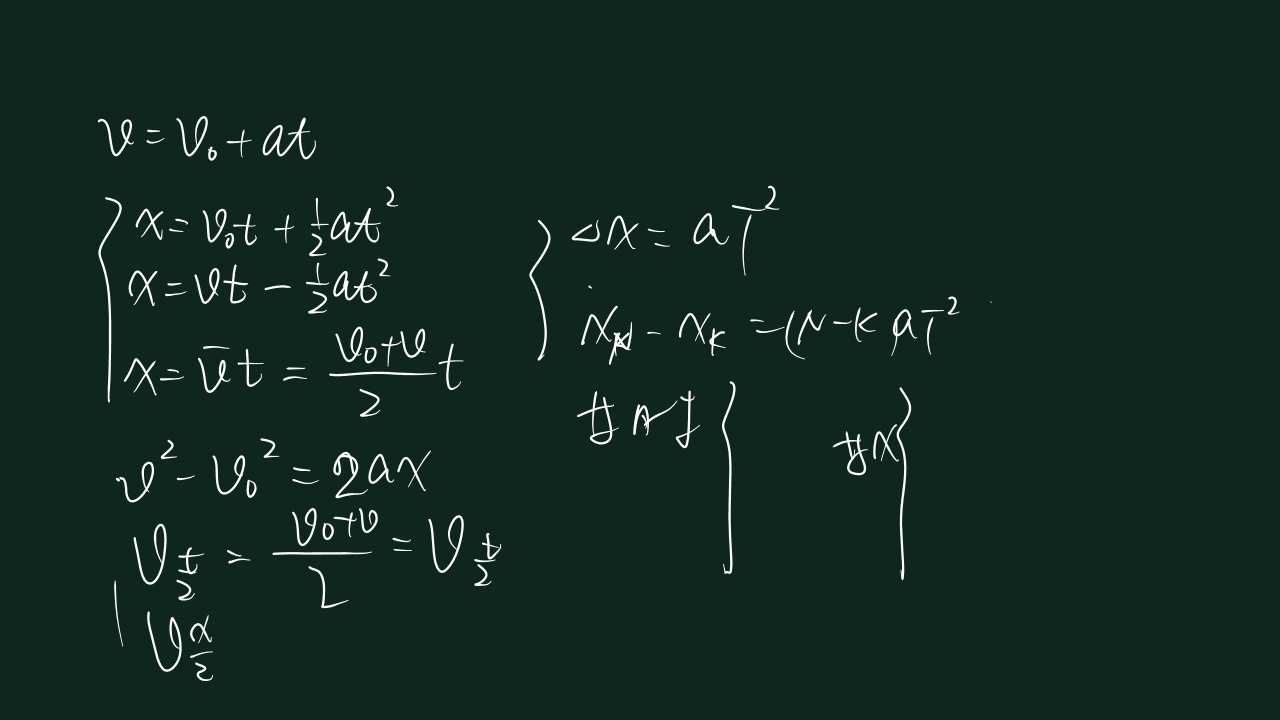 v = v₀ + at
x = v₀t + 1/2 at²
x = vt - 1/2 at²
x = v̄t = (v₀+v)/2 t
v² - v₀² = 2ax
v_(t/2) = (v₀+v)/2 = v_(t/2)
v_(x/2)
△x = aT²
x_N - x_K = (N-K aT²